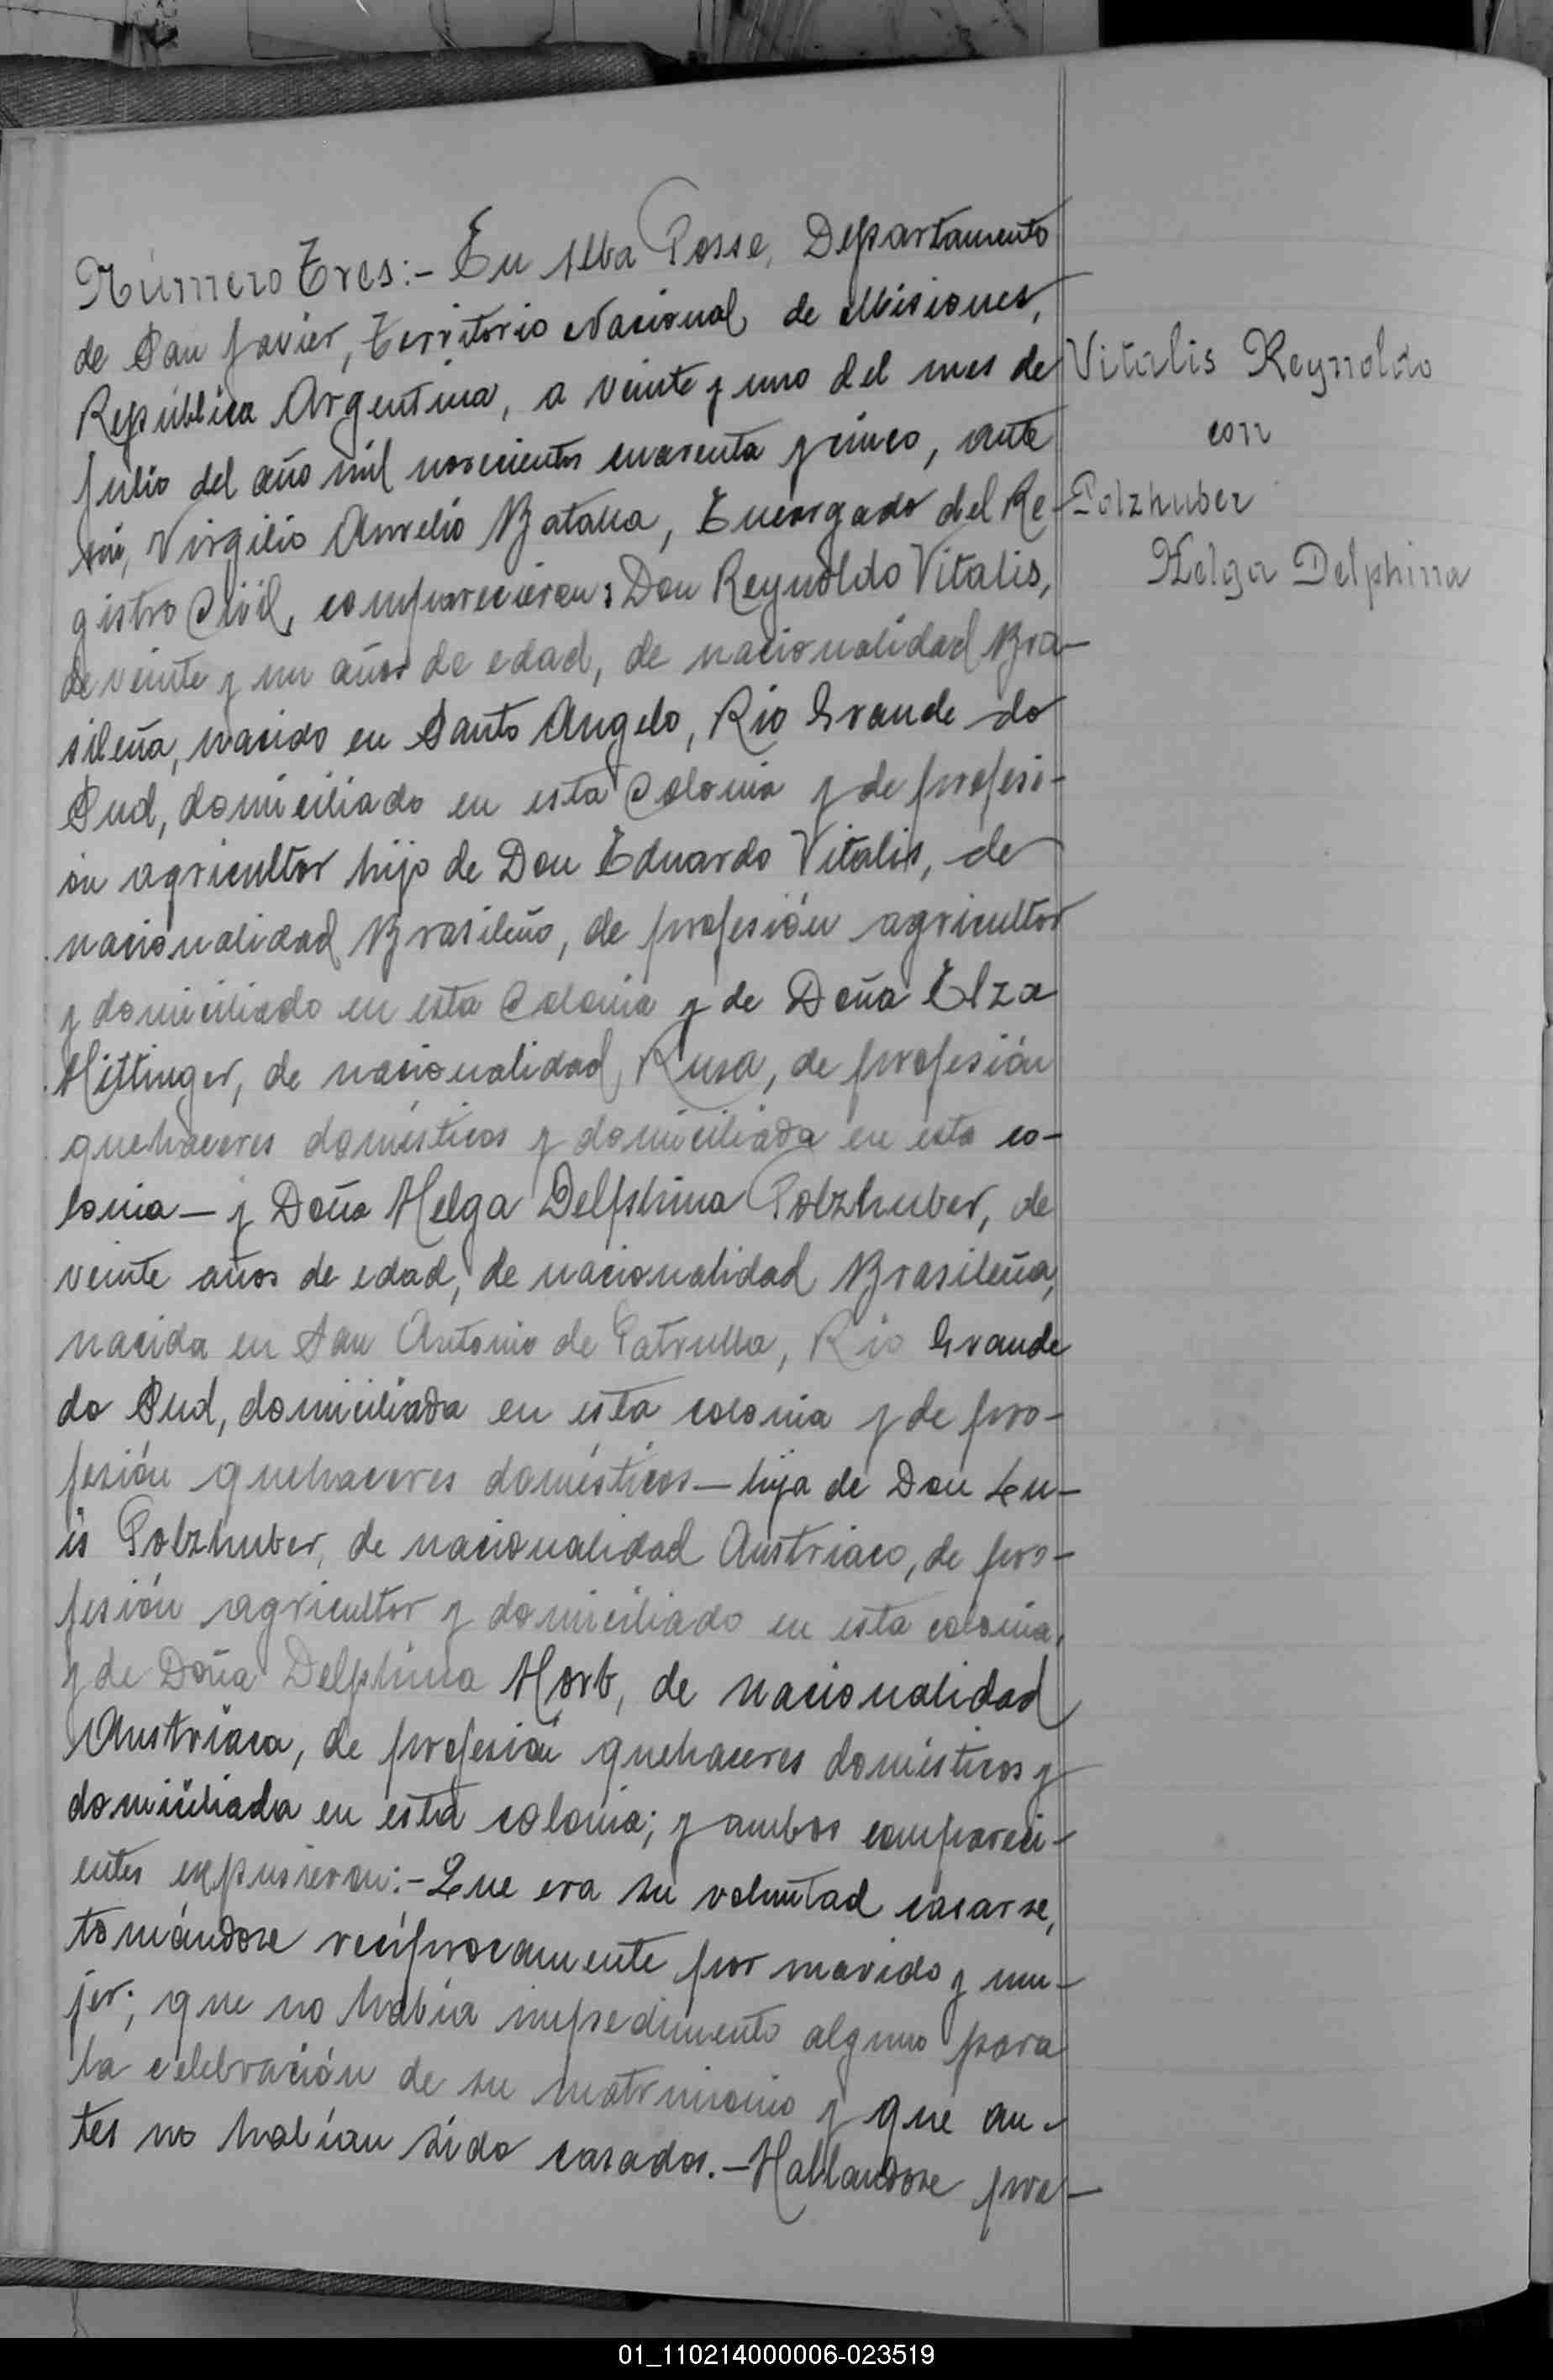 Número Tres:- En Alba Posse, Departamento
de San Javier, Territorio Nacional de Misiones,
República Argentina, a veinte y uno del mes de
Julio del año mil novecientos cuarenta y cinco, ante
mi, Virgilio Aurelio Batalla, Encargado del Re-
gistro Civil, comparecieron: Don Reynoldo Vitalis,
de veinte y un años de edad, de nacionalidad Bra-
sileña, nacido en Santo Angelo, Rio Grande do
Sud, domiciliado en esta Colonia y de profesi-
ón agricultor hijo de Don Eduardo Vitalis, de
nacionalidad Brasileño, de profesión agricultor
y domiciliado en esta Colonia y de Doña Elza
Hittinger, de nacionalidad Rusa, de profesión
quehaceres domésticos y domiciliada en esta co-
lonia — y Doña Helga Delphina Polzhuber, de
veinte años de edad, de nacionalidad Brasileña,
nacida en San Antonio de Patrulla, Rio Grande
do Sud, domiciliada en esta colonia y de pro-
fesión quehaceres domésticos — hija de Don Lu-
is Polzhuber, de nacionalidad Austriaco, de pro-
fesión agricultor y domiciliado en esta colonia,
y de Doña Delphina Horb, de nacionalidad
Austríaca, de profesión quehaceres domésticos y
domiciliada en esta colonia; y ambos compareci-
entes expusieron:- Que era su voluntad casarse,
tomándose recíprocamente por marido y mu-
jer; que no había impedimento alguno para
la celebración de su matrimonio y que an-
tes no habían sido casados. — Hallandose pre-
Vitalis Reynoldo
con
Polzhuber
Helga Delphina
01_110214000006-023519